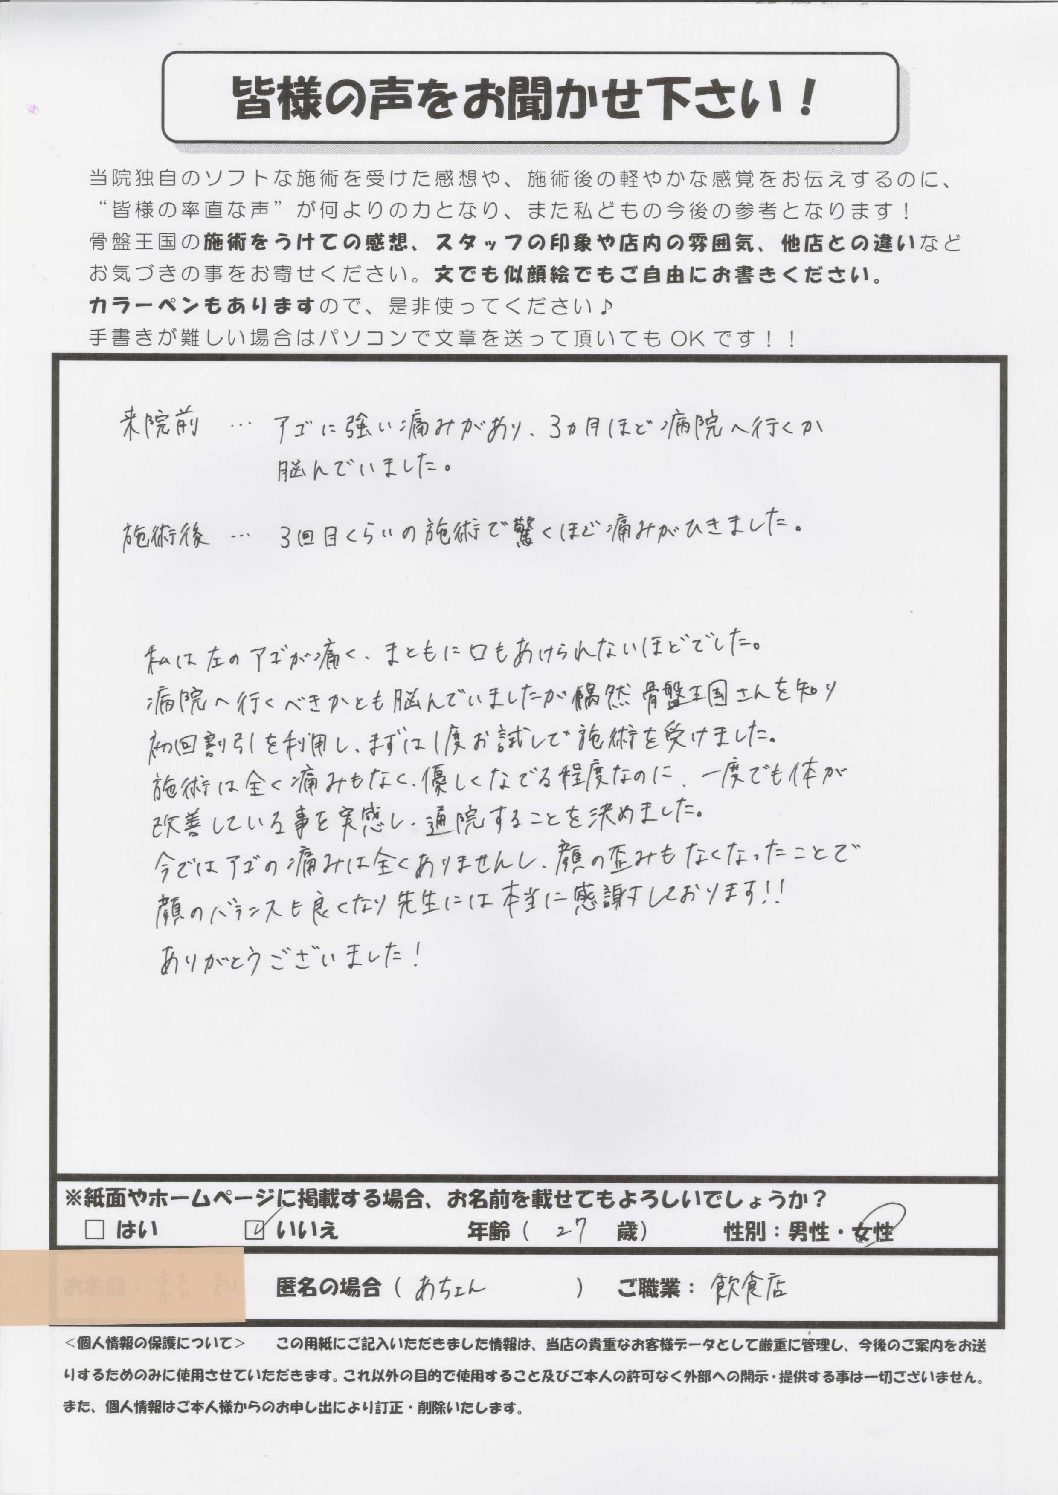 皆様の声をお聞かせ下さい！
当院独自のソフトな施術を受けた感想や、施術後の軽やかな感覚をお伝えするのに、
“皆様の率直な声”が何よりの力となり、また私どもの今後の参考となります！
骨盤王国の施術をうけての感想、スタッフの印象や店内の雰囲気、他店との違いなど
お気づきの事をお寄せください。文でも似顔絵でもご自由にお書きください。
カラーペンもありますので、是非使ってください♪
手書きが難しい場合はパソコンで文章を送って頂いてもOKです！！
来院前 … アゴに強い痛みがあり、3ヵ月ほど病院へ行くか
脳んでいました。
施術後 … 3回目くらいの施術で驚くほど痛みがひきました。
私は左のアゴが痛く、まともに口もあけられないほどでした。
病院へ行くべきかとも脳んでいましたが偶然骨盤王国さんを知り
初回割引を利用し、まずは1度お試しで施術を受けました。
施術は全く痛みもなく、優しくなでる程度なのに、一度でも体が
改善している事を実感し、通院することを決めました。
今ではアゴの痛みは全くありませんし、顔の歪みもなくなったことで
顔のバランスも良くなり先生には本当に感謝しております!!
ありがとうございました!
※紙面やホームページに掲載する場合、お名前を載せてもよろしいでしょうか？
□ はい ☑ いいえ 年齢（ 27 歳） 性別：男性・女性
匿名の場合（ あちょん ） ご職業： 飲食店
＜個人情報の保護について＞ この用紙にご記入いただきました情報は、当店の貴重なお客様データとして厳重に管理し、今後のご案内をお送
りするためのみに使用させていただきます。これ以外の目的で使用すること及びご本人の許可なく外部への開示・提供する事は一切ございません。
また、個人情報はご本人様からのお申し出により訂正・削除いたします。